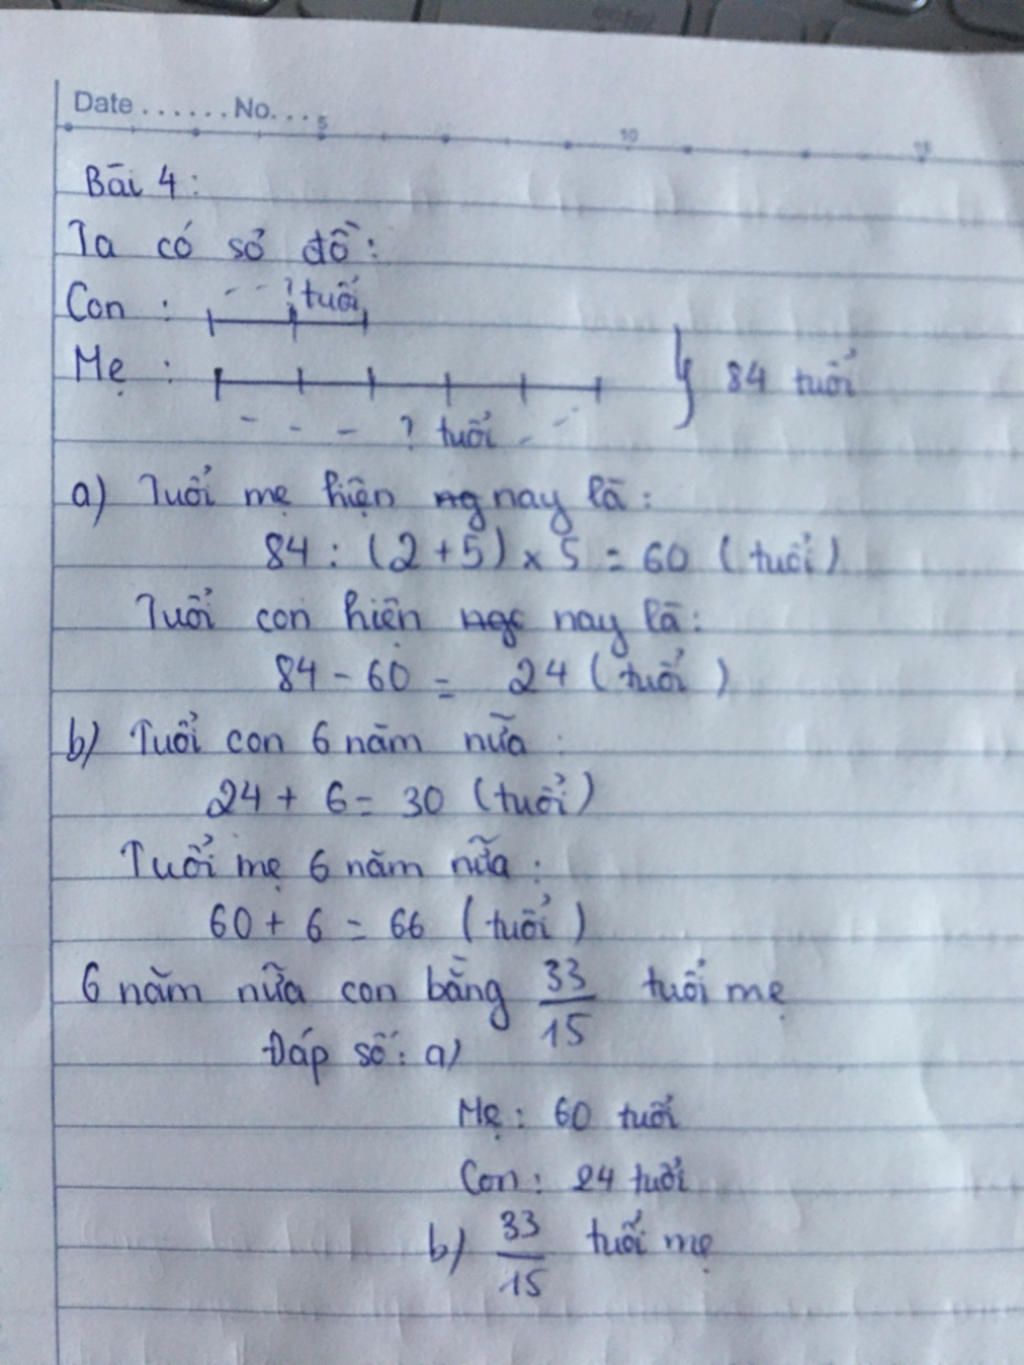 Date ...... No....
5 10 15
Bài 4:
Ta có sơ đồ:
? tuổi
Con :
Mẹ : 84 tuổi
? tuổi
a) Tuổi mẹ hiện ng nay là:
84 : (2 + 5) x 5 = 60 (tuổi)
Tuổi con hiện nay là:
84 - 60 = 24 (tuổi)
b) Tuổi con 6 năm nữa :
24 + 6 = 30 (tuổi)
Tuổi mẹ 6 năm nữa :
60 + 6 = 66 (tuổi)
6 năm nữa con bằng 33/15 tuổi mẹ
Đáp số: a)
Mẹ: 60 tuổi
Con: 24 tuổi
b) 33/15 tuổi mẹ